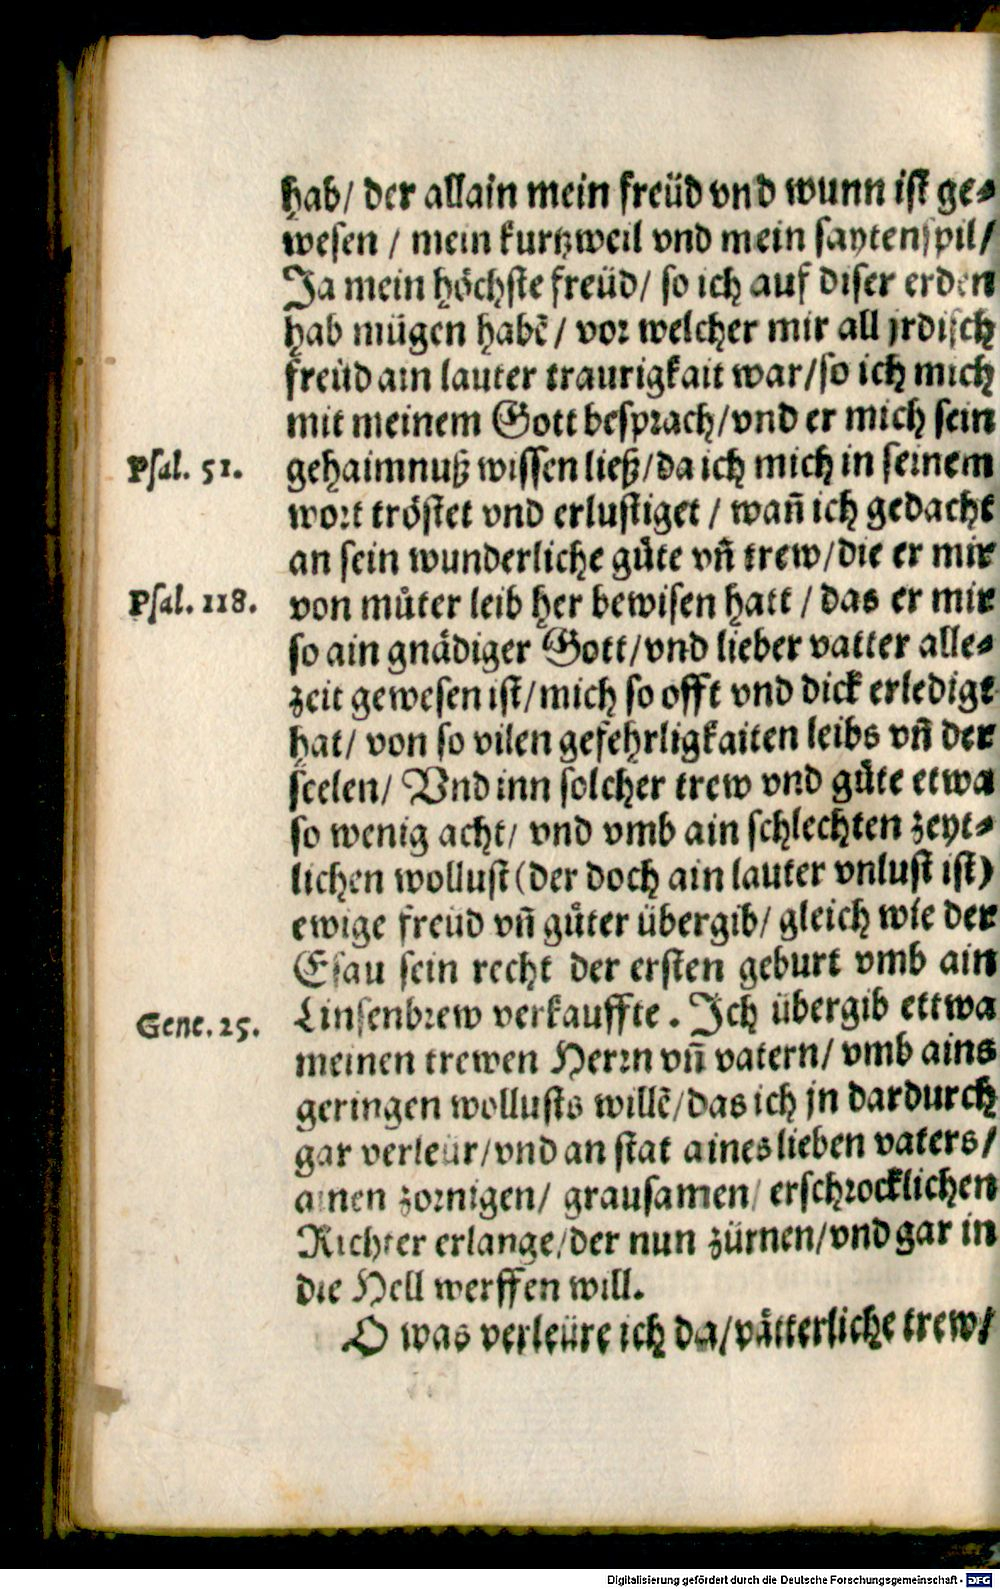 hab/ der allain mein freüd vnd wunn ist ge⸗
wesen / mein kurtzweil vnd mein saytenspil/
Ja mein höchste freüd/ so ich auf diser erden
hab mügen habē/ vor welcher mir all jrdisch
freüd ain lauter traurigkait war/so ich mich
mit meinem Gott besprach/vnd er mich sein
Psal. 51.
gehaimnuß wissen ließ/da ich mich in seinem
wort tröstet vnd erlustiget / wañ ich gedacht
an sein wunderliche gůte vñ trew/die er mir
Psal. 118.
von můter leib her bewisen hatt / das er mir
so ain gnädiger Gott/vnd lieber vatter alle⸗
zeit gewesen ist/mich so offt vnd dick erledigt
hat/ von so vilen gefehrligkaiten leibs vñ der
seelen/ Vnd inn solcher trew vnd gůte etwa
so wenig acht/ vnd vmb ain schlechten zeyt⸗
lichen wollust(der doch ain lauter vnlust ist)
ewige freüd vñ gůter übergib/ gleich wie der
Esau sein recht der ersten geburt vmb ain
Gene. 25.
Linsenbrew verkauffte. Ich übergib ettwa
meinen trewen Herrn vñ vatern/ vmb ains
geringen wollusts willē/das ich jn dardurch
gar verleür/vnd an stat aines lieben vaters/
ainen zornigen/ grausamen/ erschrocklichen
Richter erlange/der nun zürnen/vnd gar in
die Hell werffen will.
O was verleüre ich da/vätterliche trew/
Digitalisierung gefördert durch die Deutsche Forschungsgemeinschaft - DFG